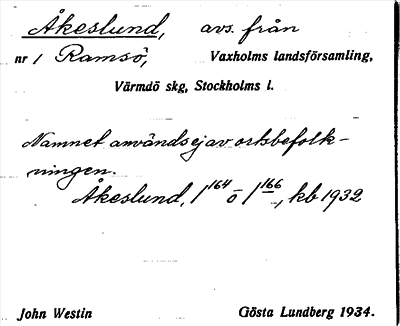 Åkeslund, avs. från
nr 1 Ramsö, Vaxholms landsförsamling,
Värmdö skg, Stockholms l.
Namnet användes ej av ortsbefolk-
ningen.
Åkeslund, 1¹⁶⁴ o 1¹⁶⁶, kb 1932
John Westin Gösta Lundberg 1934.